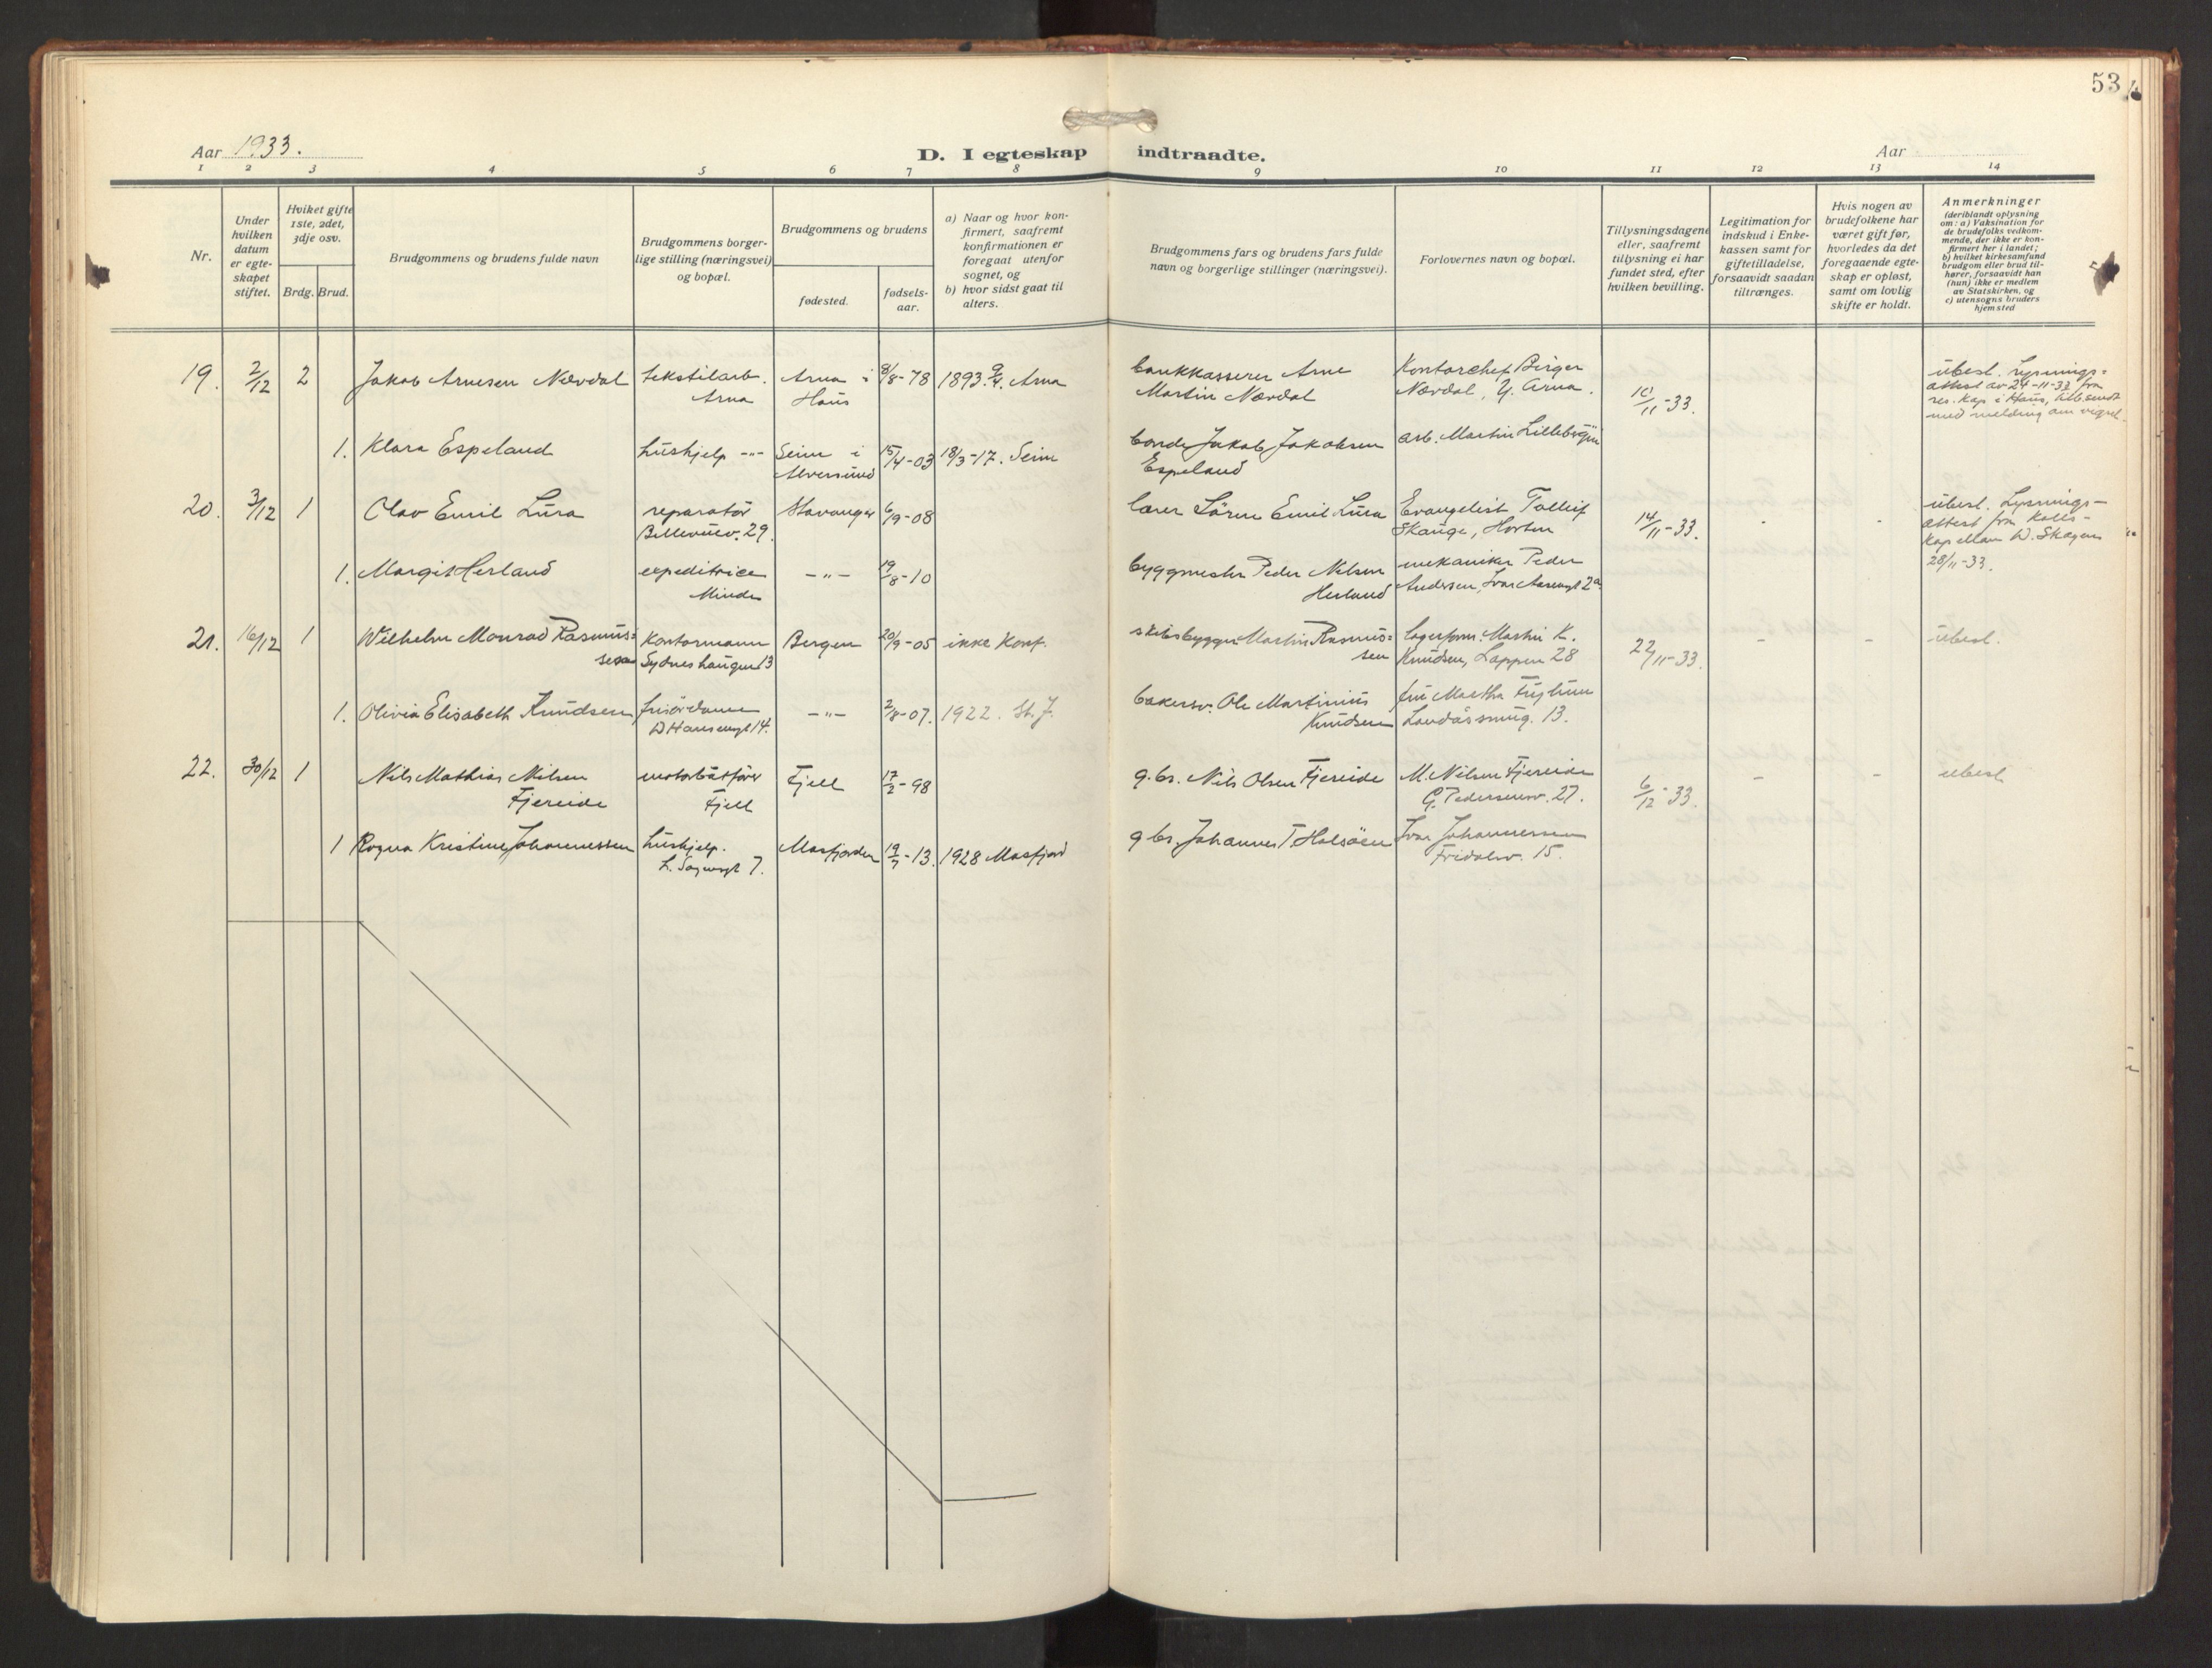 53
Aar 1933.
D. I egteskap indtraadte.
Aar
1 2 3 4 5 6 7 8 9 10 11 12 13 14
Nr.
Under hvilken datum er egteskapet stiftet.
Hviket gifte 1ste, 2det, 3dje osv.
Brdg. Brud.
Brudgommens og brudens fulde navn
Brudgommens borgerlige stilling (næringsvei) og bopæl.
Brudgommens og brudens
fødested.
fødselsaar.
a) Naar og hvor konfirmert, saafremt konfirmationen er foregaat utenfor sognet, og
b) hvor sidst gaat til alters.
Brudgommens fars og brudens fars fulde navn og borgerlige stillinger (næringsvei).
Forlovernes navn og bopæl.
Tillysningsdagene eller, saafremt tillysning ei har fundet sted, efter hvilken bevilling.
Legitimation for indskud i Enkekassen samt for giftetilladelse, forsaavidt saadan tiltrænges.
Hvis nogen av brudefolkene har været gift før, hvorledes da det foregaaende egteskap er opløst, samt om lovlig skifte er holdt.
Anmerkninger
(deriblandt oplysning om: a) Vaksination for de brudefolks vedkommende, der ikke er konfirmert her i landet; b) hvilket kirkesamfund brudgom eller brud tilhører, forsaavidt han (hun) ikke er medlem av Statskirken, og c) utensogns bruders hjemsted
19. 2/12 2 Jakob Arnesen Nævdal tekstilarb. Arna i 8/8-78 1893. 9/4. Arna bankkasserer Arne Kontorchef Birger ubest. Lysnings=
Arna Haus Martin Nævdal Nævdal, Y. Arna. 10/11-33. attest av 24-11-33 fra
res. kap i Haus,
med melding om vigsel
1. Klara Espeland hushjelp -"- Seim i 15/4-03 18/3-17. Seim bonde Jakob Jakobsen arb. Martin Lillebergen
Alversund Espeland
20. 3/12 1 Olav Emil Lura reparatør Stavanger 6/9-08 lærer Sören Emil Lura Evangelist Tolleif 14/11-33. - - ubest. Lysnings-
Bellevuev. 29. Skauge, Horten attest fra
kapellan W. Skagen
28/11-33.
1. Margit Herland expeditrice -"- 19/8-10 byggmester Peder Nilsen mekaniker Peder
Minde Herland Andersen, Ivar Aasensgt 2a
21. 16/12 1 Wilhelm Monrad Rasmus= Kontormann Bergen 20/9-05 ikke konf. skibsbygger Martin Rasmus= Lagerform. Martin K. 22/11-33. - - ubest.
sen Sydneshaugen 13 sen Knudsen, Lappen 28
1. Olivia Elisabeth Knudsen frisördame -"- 2/8-07. 1922. St. J. bakersv. Ole Martinius fru Martha
D Hansensgt 14. Knudsen Landåssmug. 13.
22. 30/12 1 Nils Mathias Nilsen motorbåtförer Fjell 17/2-98 g.br. Nils Olsen Fjereide M. Nilsen Fjereide 6/12-33. - - ubest
Fjereide Fjell G. Pedersensv. 27.
1 Ragna Kristine Johannessen hushjelp. Masfjorden 19/7-13. 1928 Masfjord g.br. Johannes T. Halsöen Ivar Johannessen
L. Sagensgt 7. Fridalsv. 15.